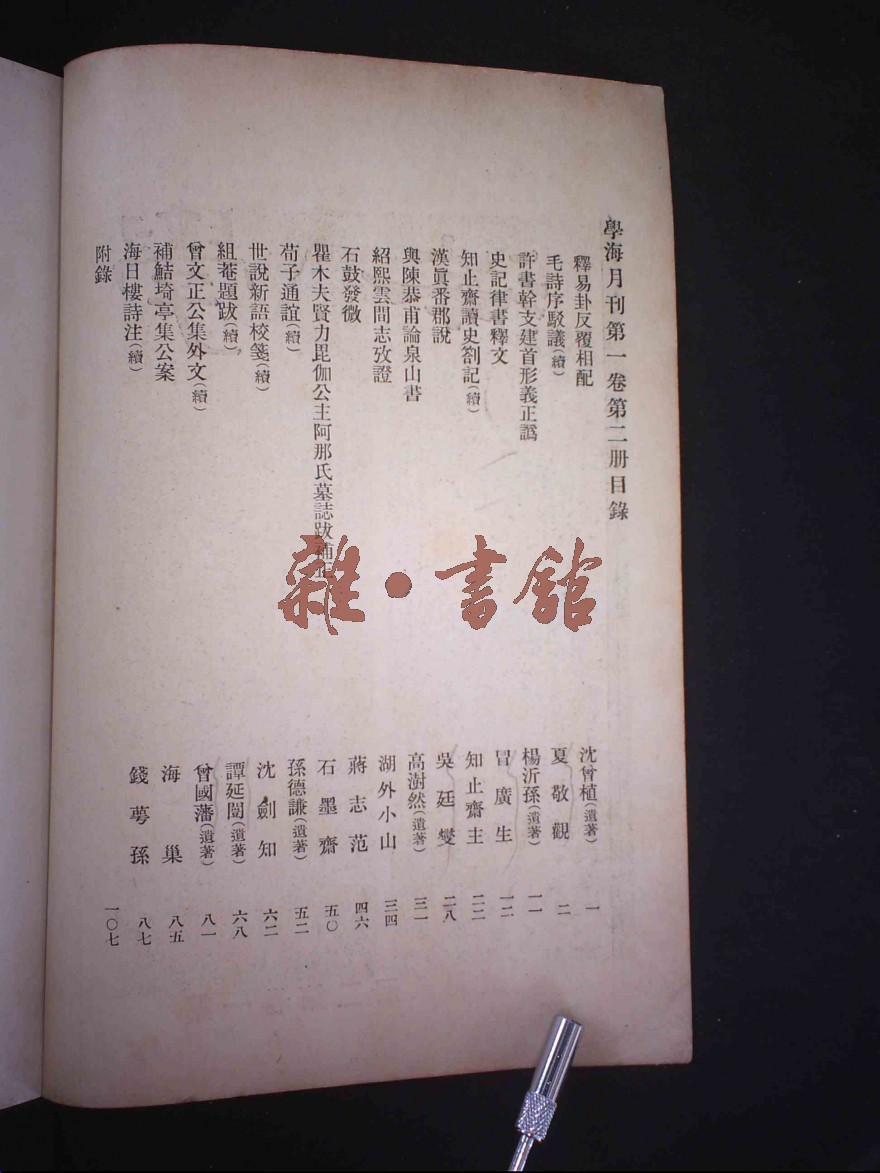 學海月刊第一卷第二册目錄
釋易卦反覆相配 沈曾植(遺著) 一
毛詩序駁議(續) 夏敬觀 二
許書幹支建首形義正譌 楊沂孫(遺著) 一一
史記律書釋文 冒廣生 一二
知止齋讀史劄記(續) 知止齋主 二二
漢眞番郡說 吳廷燮 二八
與陳恭甫論泉山書 高澍然(遺著) 三一
紹熙雲間志攷證 湖外小山 三四
石鼓發微 蔣志范 四六
瞿木夫賢力毘伽公主阿那氏墓誌跋補正 石墨齋 五〇
荀子通誼(續) 孫德謙(遺著) 五二
世說新語校箋(續) 沈劍知 六二
組菴題跋(續) 譚延闓(遺著) 六八
曾文正公集外文(續) 曾國藩(遺著) 八一
補鮚埼亭集公案 海巢 八五
海日樓詩注(續) 錢萼孫 八七
附錄 一〇七
雜·書館